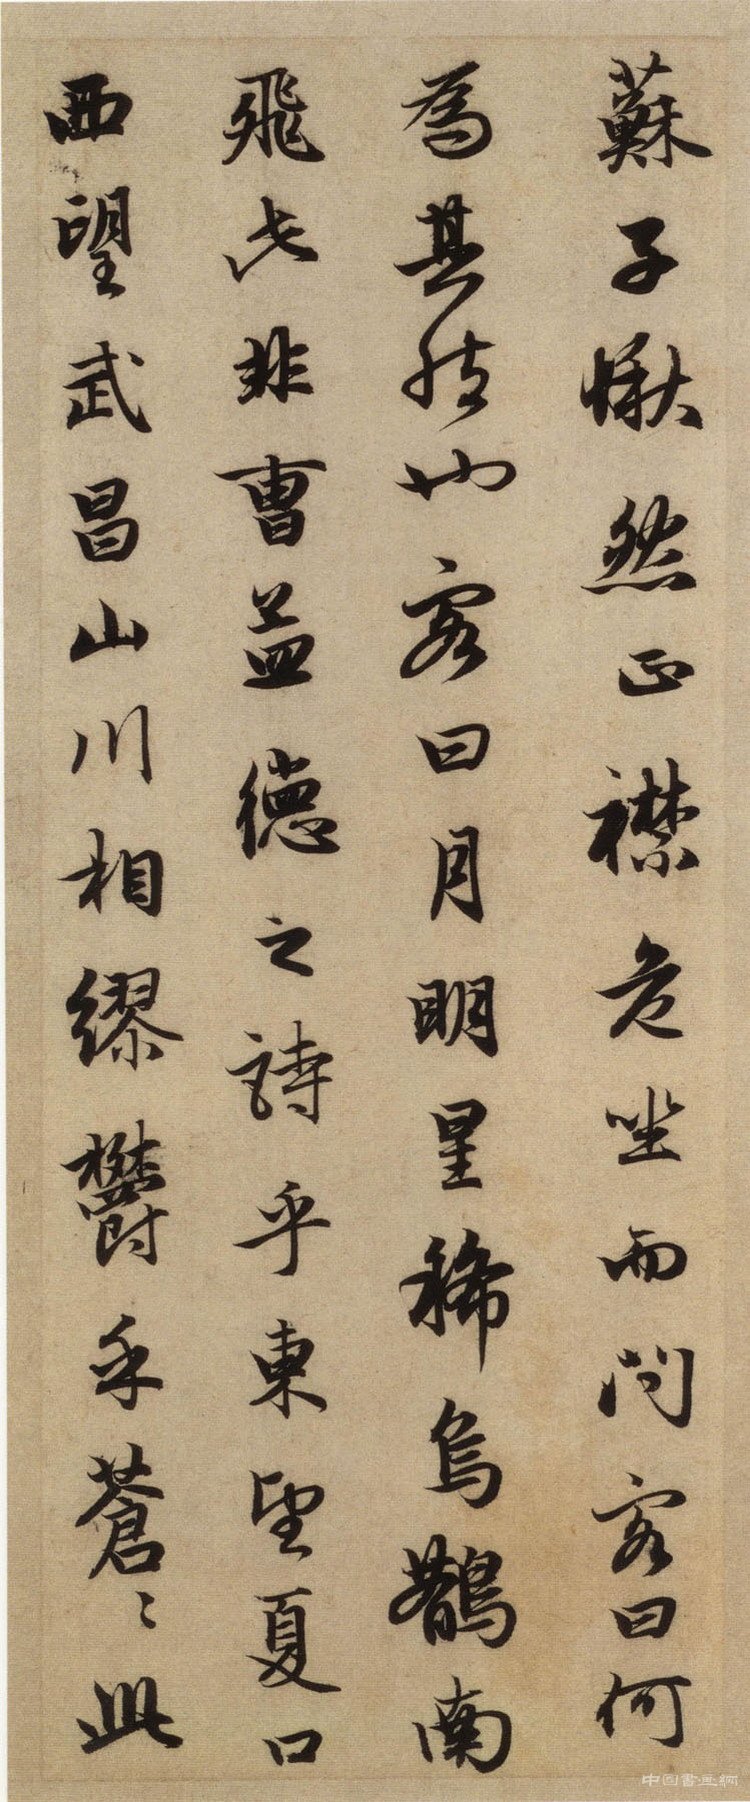 蘇子愀然正襟危坐而問客曰何
為其然也客曰月明星稀烏鵲南
飛此非曹益德之詩乎東望夏口
西望武昌山川相繆鬱乎蒼〻此
中国書画網